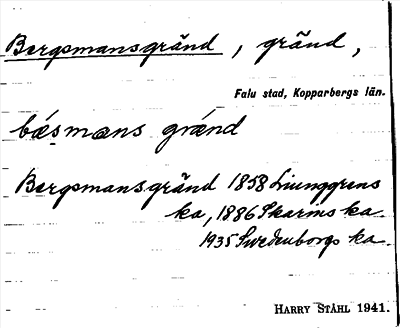 Bergsmansgränd, gränd,
Falu stad, Kopparbergs län.
bæs̩mans grénd
Bergsmansgränd 1858 Ljunggrens
ka, 1886 Skarins ka.
1935 Swedenborgs ka.
HARRY STÅHL 1941.